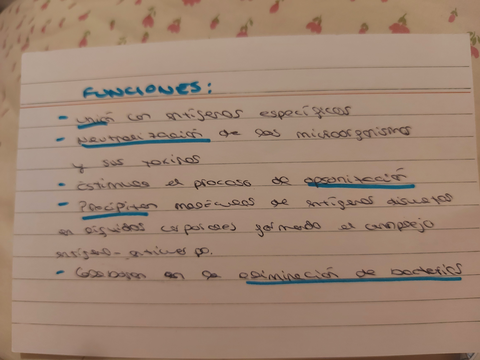 FUNCIONES:
- Unión con antígenos específicos
- Neutralización de los microorganismos
y sus toxinas
- Estimula el proceso de opsonización
- Precipitan moléculas de antígenos disueltos
en líquidos corporales formando el complejo
antígeno-anticuerpo.
- Colaboran en la eliminación de bacterias